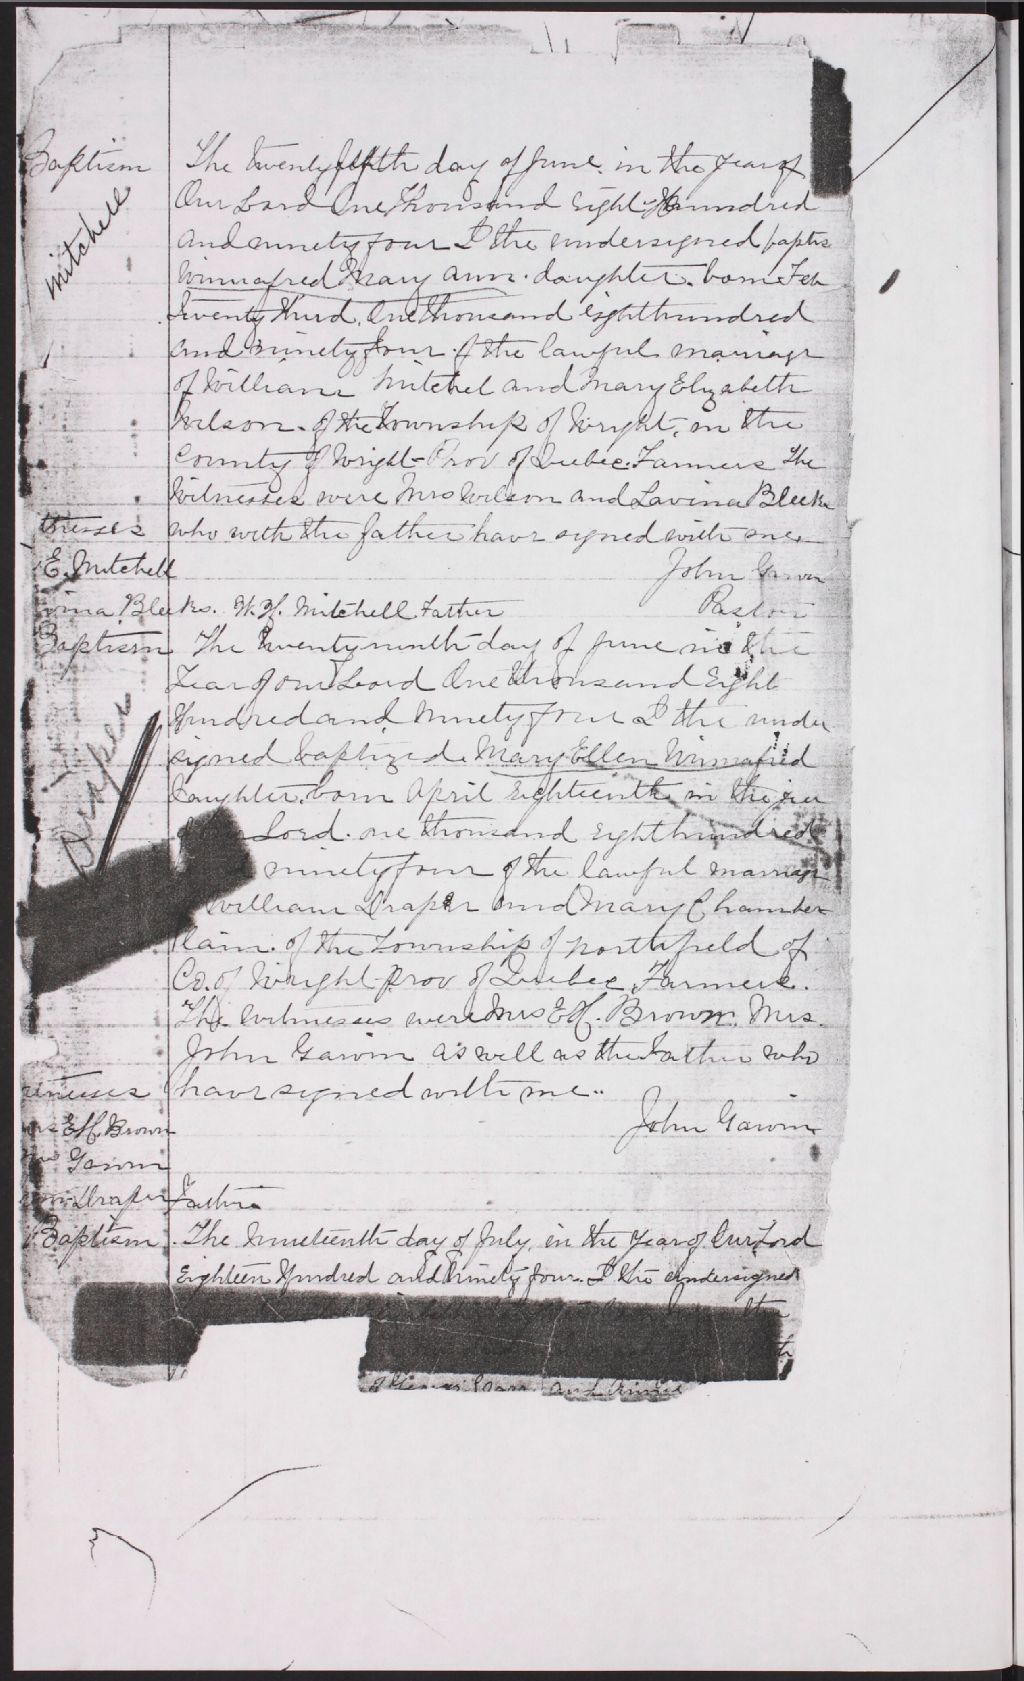 Baptism
Mitchell
The twenty fifth day of June in the year of
Our Lord One Thousand Eight Hundred
and ninety four I the undersigned baptis
Winnafred Mary Ann daughter born Feb
Twenty third, One thousand eight hundred
and ninety four of the lawful marriage
of William Mitchel and Mary Elizabeth
Wilson of the Township of Wright, in the
County of Wright Prov of Quebec. Farmers The
Witnesses were Mrs Wilson and Lavina Bleeks
who with the father have signed with me.
tnesses
E. Mitchell
John Gavin
vina Bleeks. W. H. Mitchell Father
Pastor
Baptism
Draper
The twenty ninth day of June in the
Year of our Lord One thousand Eight
Hundred and ninety four I the under
signed baptized Mary Ellen Winnafred
daughter, born April Eighteenth in the
Lord one thousand eight hundred
ninety four of the lawful marriage
William Draper and Mary Chamber
lain of the Township of Northfield of
Co. of Wright Prov of Quebec, Farmers.
The witnesses were Mrs E H. Brown, Mrs.
John Gavin as well as the Father who
have signed with me..
John Gavin
tnesses
rs E H. Brown
Gavin
Draper Father
Baptism
The Nineteenth day of July, in the year of Our Lord
Eighteen Hundred and Ninety four. I the undersigned
the
and